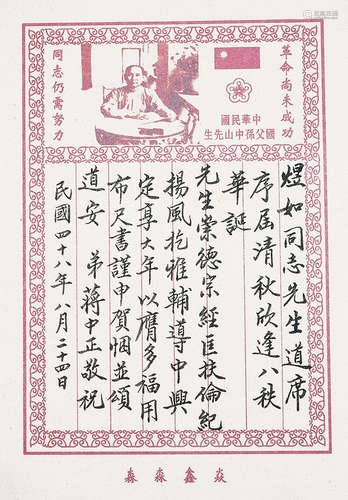 革命尚未成功
同志仍需努力
中華民國
國父孫中山先生
煜如同志先生道席
序屆清秋欣逢八秩
華誕
先生崇德宗經匡扶倫紀
揚風扢雅輔導中興
定享大年以膺多福用
布尺書謹申賀悃並頌
道安 弟蔣中正敬祝
民國四十八年八月二十四日
森淼鑫焱